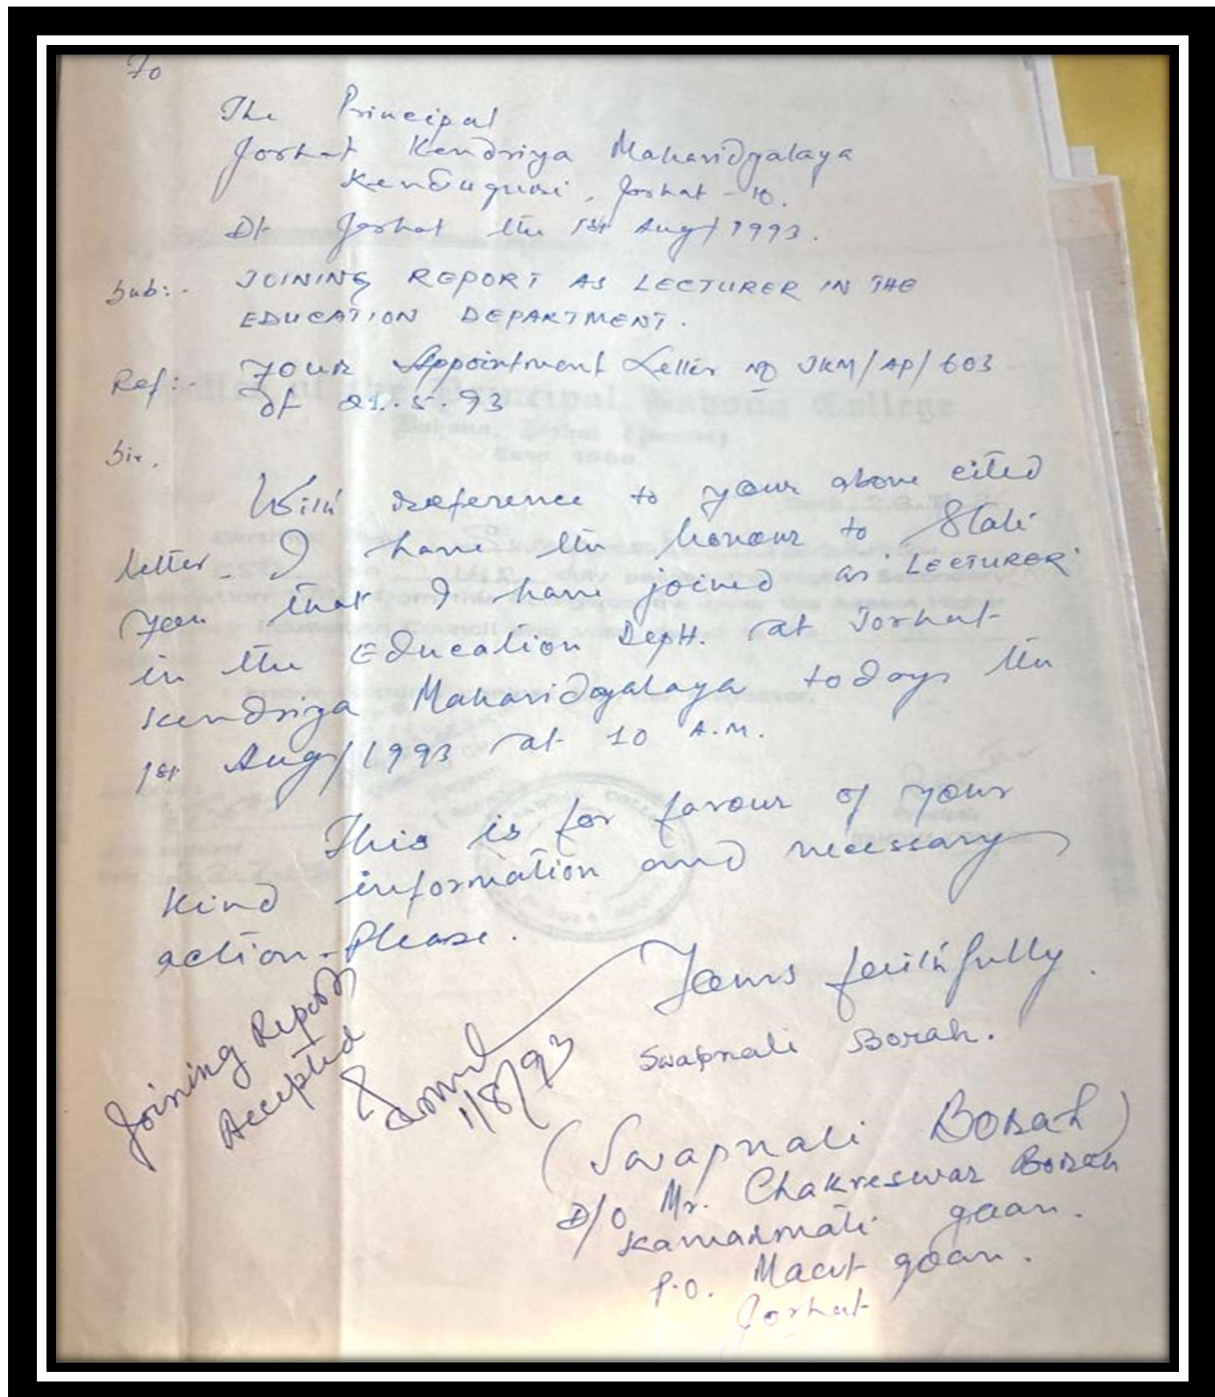 To
The Principal
Jorhat Kendriya Mahavidyalaya
Kenduguri, Jorhat - 10.
Dt Jorhat the 1st Aug/1993.
Sub:- JOINING REPORT AS LECTURER IN THE
EDUCATION DEPARTMENT.
Ref:- Your Appointment Letter no JKM/AP/603
of 21.5.93
Sir,
With reference to your above cited
letter I have the honour to State
you that I have joined as 'LECTURER'
in the Education Deptt. at Jorhat
Kendriya Mahavidyalaya todays the
1st Aug/1993 at 10 A.M.
This is for favour of your
kind information and necessary
action please.
Yours faithfully.
Swapnali Borah.
Joining Report
Accepted
1/8/93
(Swapnali Borah)
D/O Mr. Chakreswar Borah
Kamarmati gaon.
P.O. Maut gaon.
Jorhat